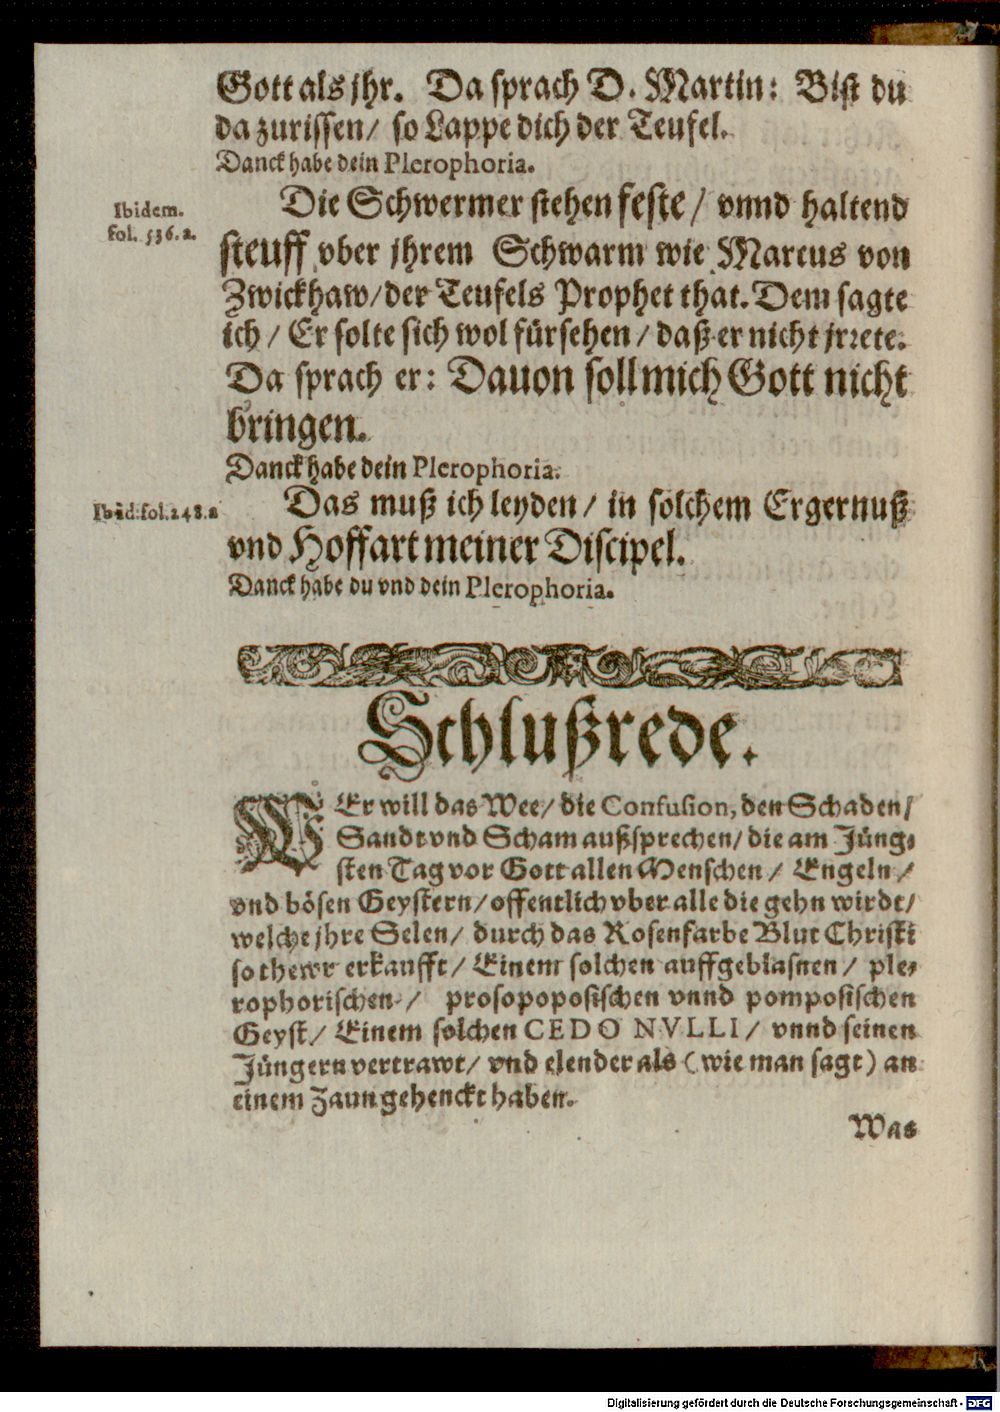 Gott als jhr. Da sprach D. Martin: Bist du
da zurissen/ so Lappe dich der Teufel.
Danck habe dein Plerophoria.
Ibidem.
fol. 536. a.
Die Schwermer stehen feste/ vnnd haltend
steuff vber jhrem Schwarm wie Marcus von
Zwickhaw/ der Teufels Prophet that. Dem sagte
ich/ Er solte sich wol fürsehen/ daß er nicht jrrete.
Da sprach er: Dauon soll mich Gott nicht
bringen.
Danck habe dein Plerophoria.
Ibid. fol. 248. a
Das muß ich leyden/ in solchem Ergernuß
vnd Hoffart meiner Discipel.
Danck habe du vnd dein Plerophoria.
Schlußrede.
WEr will das Wee/ die Confusion, den Schaden/
Sandt vnd Scham außsprechen/ die am Jüng-
sten Tag vor Gott allen Menschen/ Engeln/
vnd bösen Geystern/ offentlich vber alle die gehn wirdt/
welche jhre Selen/ durch das Rosenfarbe Blut Christi
so thewr erkaufft/ Einem solchen auffgeblasnen/ ple-
rophorischen/ prosopoposischen vnnd pomposischen
Geyst/ Einem solchen CEDO NVLLI/ vnnd seinen
Jüngern vertrawt/ vnd elender als (wie man sagt) an
einem Zaun gehenckt haben.
Was
Digitalisierung gefördert durch die Deutsche Forschungsgemeinschaft - DFG